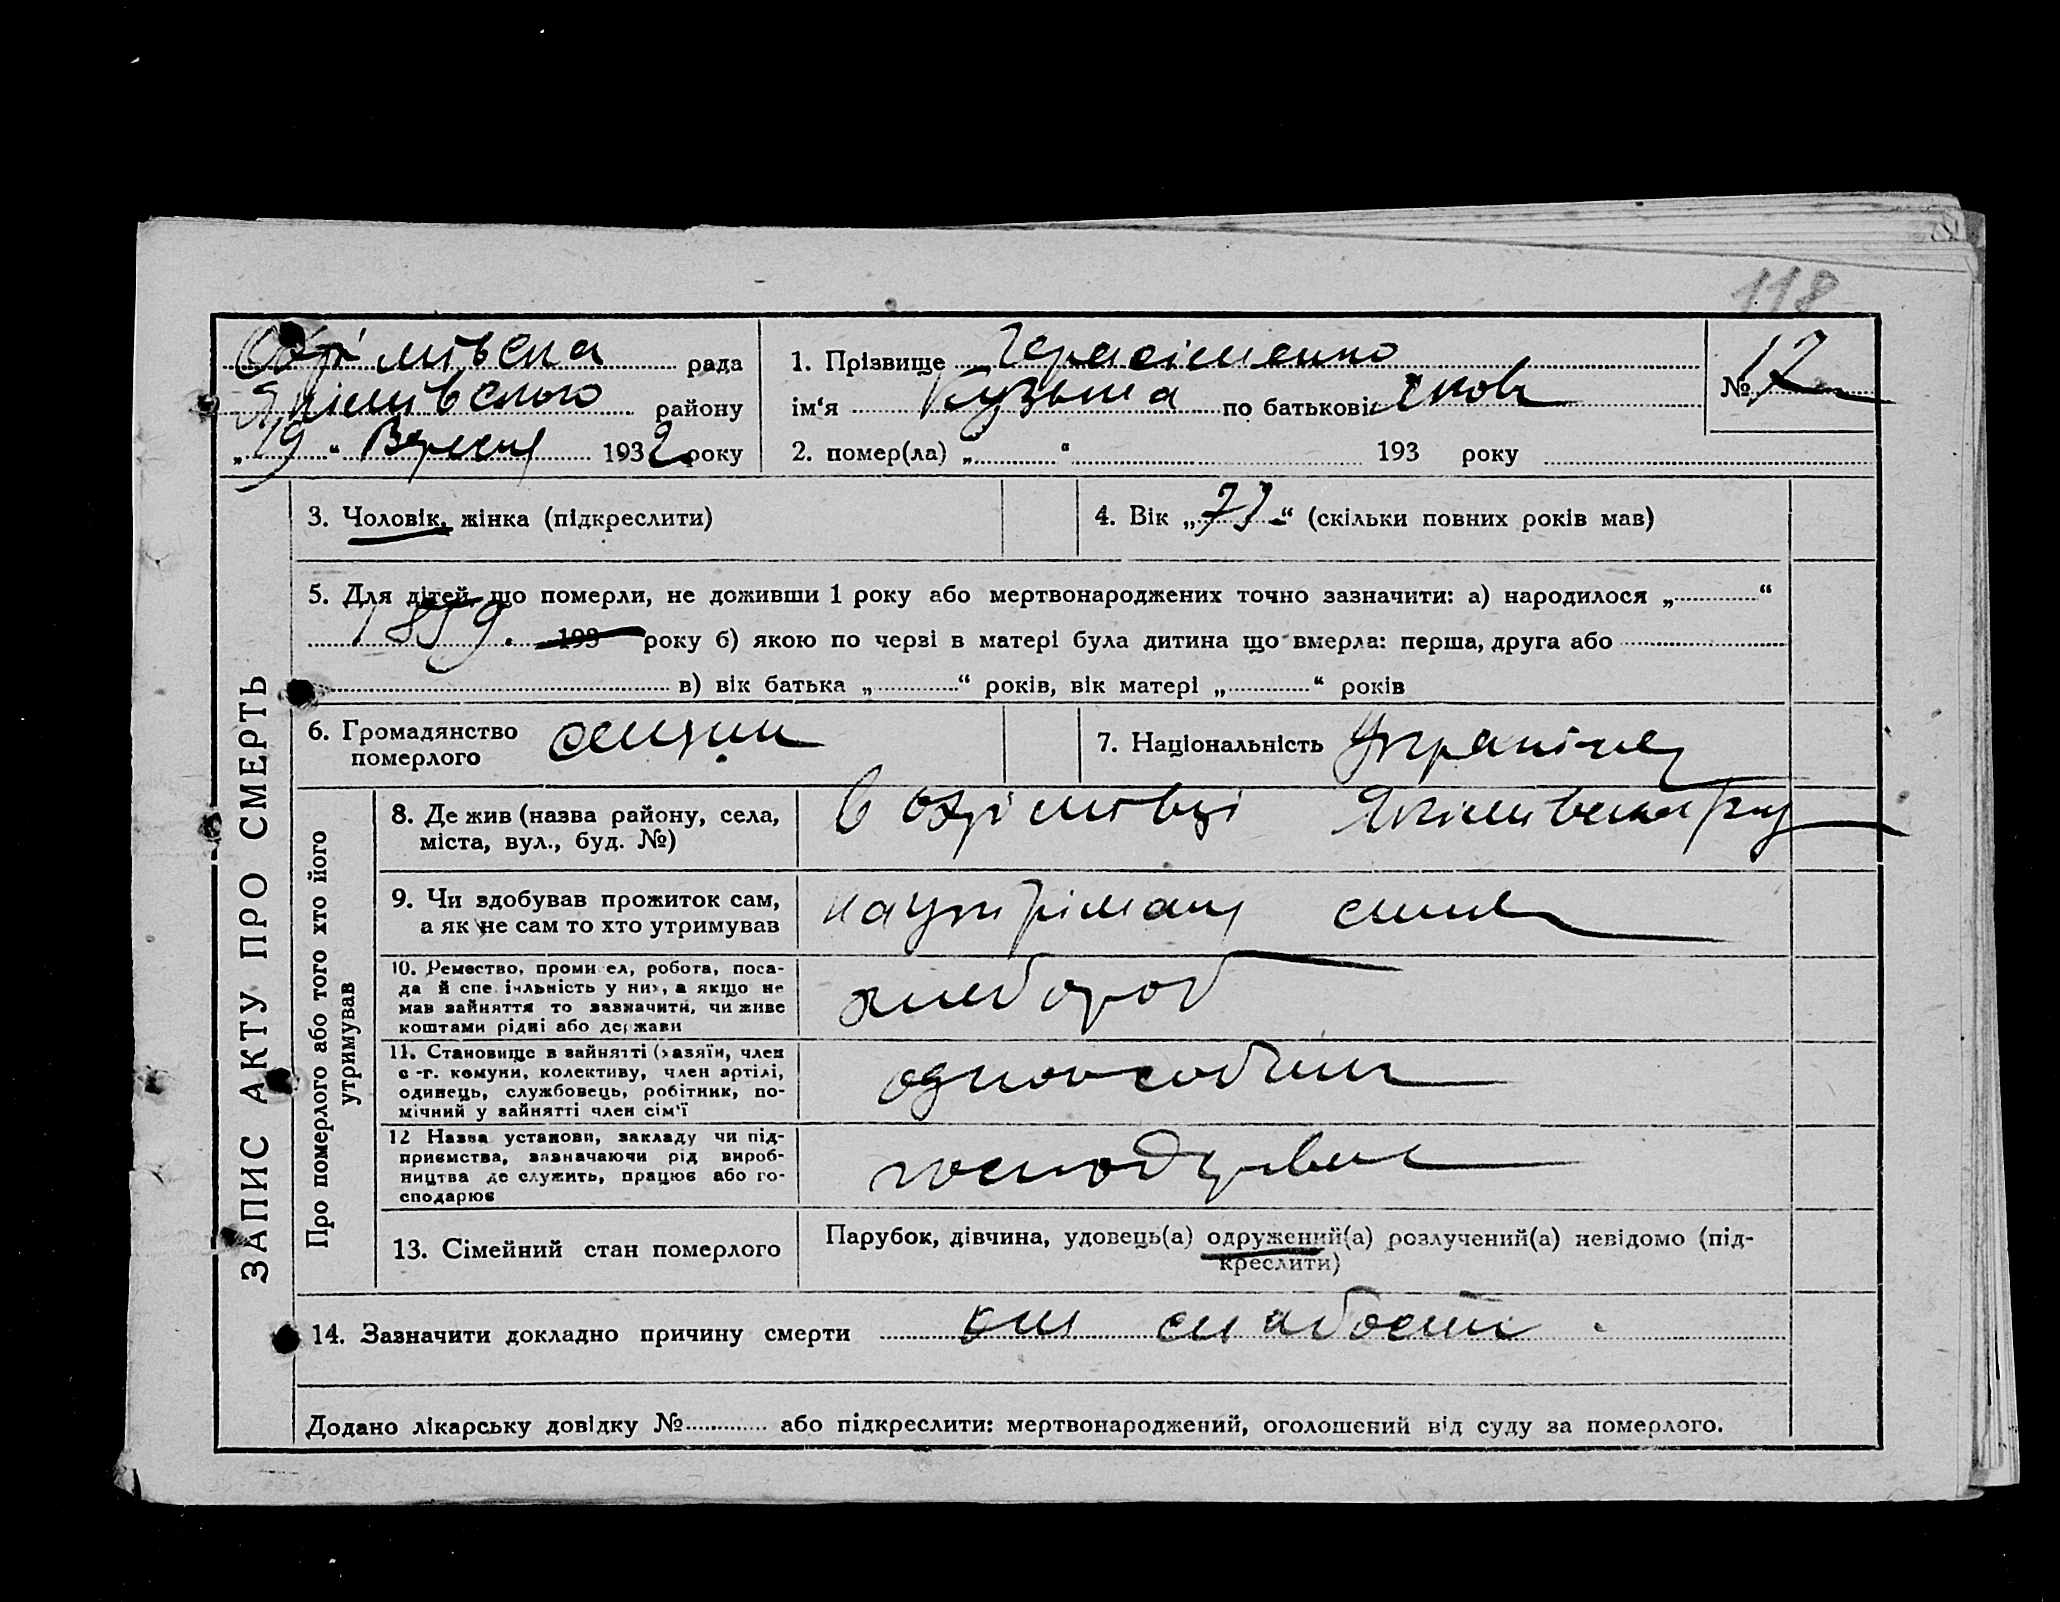 118
Охрімівська рада
Якімівського району
„19“ Вересня 1932 року
1. Прізвище Герасіменко
ім‘я Кузьма по батькові Яков
№ 12
2. помер(ла) „ “ 193 року
3. Чоловік, жінка (підкреслити)
4. Вік „73“ (скільки повних років мав)
5. Для дітей що померли, не доживши 1 року або мертвонароджених точно зазначити: а) народилося „ “
1859. 193 року б) якою по черзі в матері була дитина що вмерла: перша, друга або
в) вік батька „ “ років, вік матері „ “ років
6. Громадянство
померлого
7. Національність Українец
ЗАПИС АКТУ ПРО СМЕРТЬ
Про померлого або того хто його
утримував
8. Де жив (назва району, села,
міста, вул., буд. №)
в Охрімівці Якімівськ
9. Чи здобував прожиток сам,
а як не сам то хто утримував
сина
10. Ремество, промисел, робота, поса-
да й спеціяльність у них, а якщо не
мав зайняття то зазначити, чи живе
коштами рідні або держави
хлебороб
11. Становище в зайнятті (хазяїн, член
с.-г. комуни, колективу, член артілі,
одинець, службовець, робітник, по-
мічний у зайнятті член сім‘ї
одноособник
12 Назва установи, закладу чи під-
приємства, зазначаючи рід вироб-
ництва де служить, працює або го-
сподарює
13. Сімейний стан померлого
Парубок, дівчина, удовець(а) одружений(а) розлучений(а) невідомо (під-
креслити)
14. Зазначити докладно причину смерти от слабости.
Додано лікарську довідку № або підкреслити: мертвонароджений, оголошений від суду за померлого.